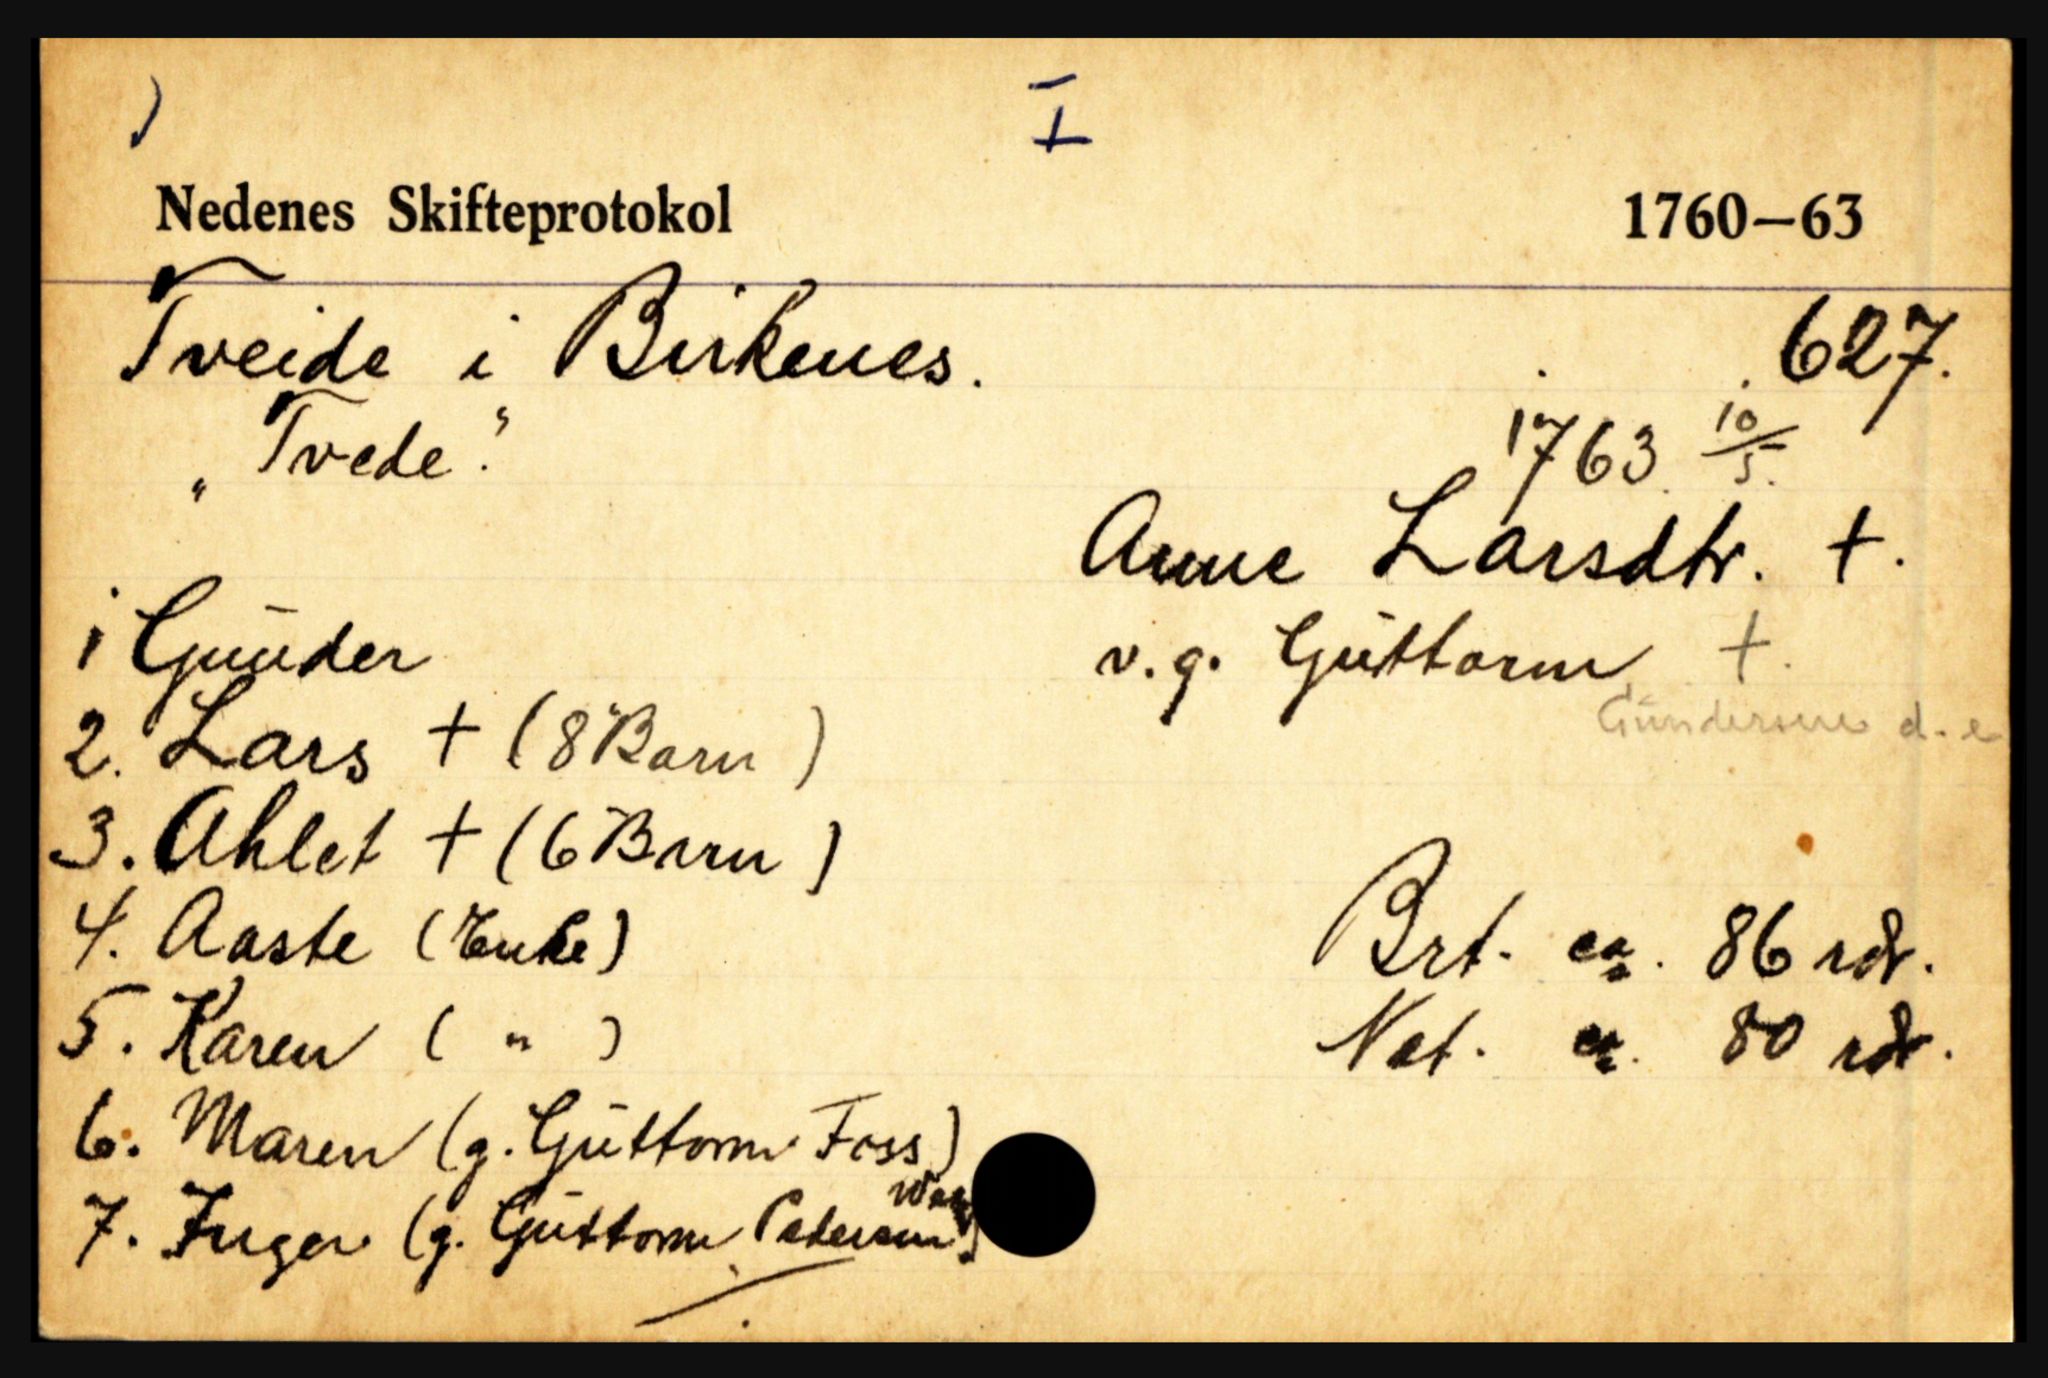 I
Nedenes Skifteprotokol 1760—63
Tveide i Birkenes. 627.
„Tvede“. 1763 10/5.
Anne Larsdtr. +.
v. g. Guttorm +.
Gundersen d. e
1 Gunder
2. Lars + (8 Barn)
3. Ahlet + (6 Barn)
4. Aaste (Enke)
5. Karen ( " )
6. Maren (g. Guttorm Foss)
7. Inger (g. Guttorm Pedersen)
Brt. ca. 86 rdr.
Net. ca. 80 rdr.